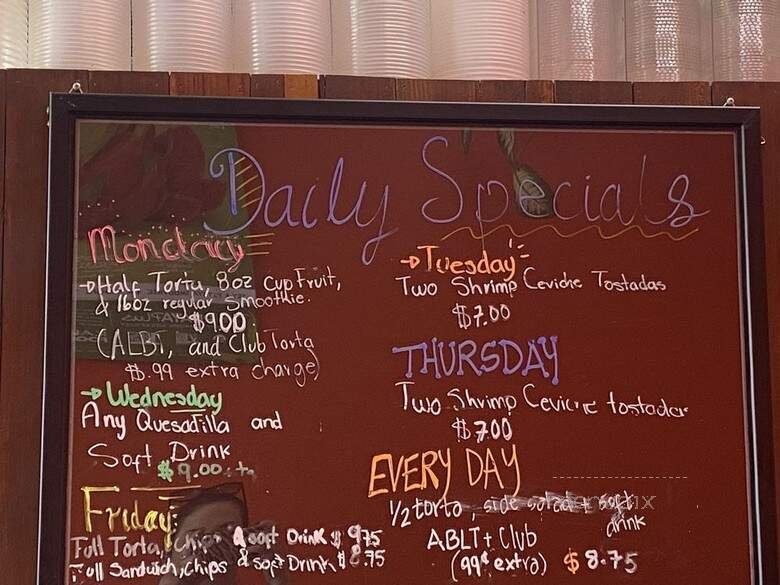 Daily Specials
Monday
→Half Torta, 8oz Cup Fruit,
& 16oz regular Smoothie.
$9.00
(ALBT, and Club Torta
$.99 extra charge)
→Wednesday
Any Quesadilla and
Soft Drink
$9.00
Friday:
Full Torta, chips & soft Drink $ 9.75
Full Sandwich, chips & soft Drink $ 8.75
→Tuesday
Two Shrimp Ceviche Tostadas
$7.00
THURSDAY
Two Shrimp Ceviche tostadas
$7.00
EVERY DAY
1/2 torta, side salad + soft
drink
ABLT + Club
(99¢ extra) $8.75